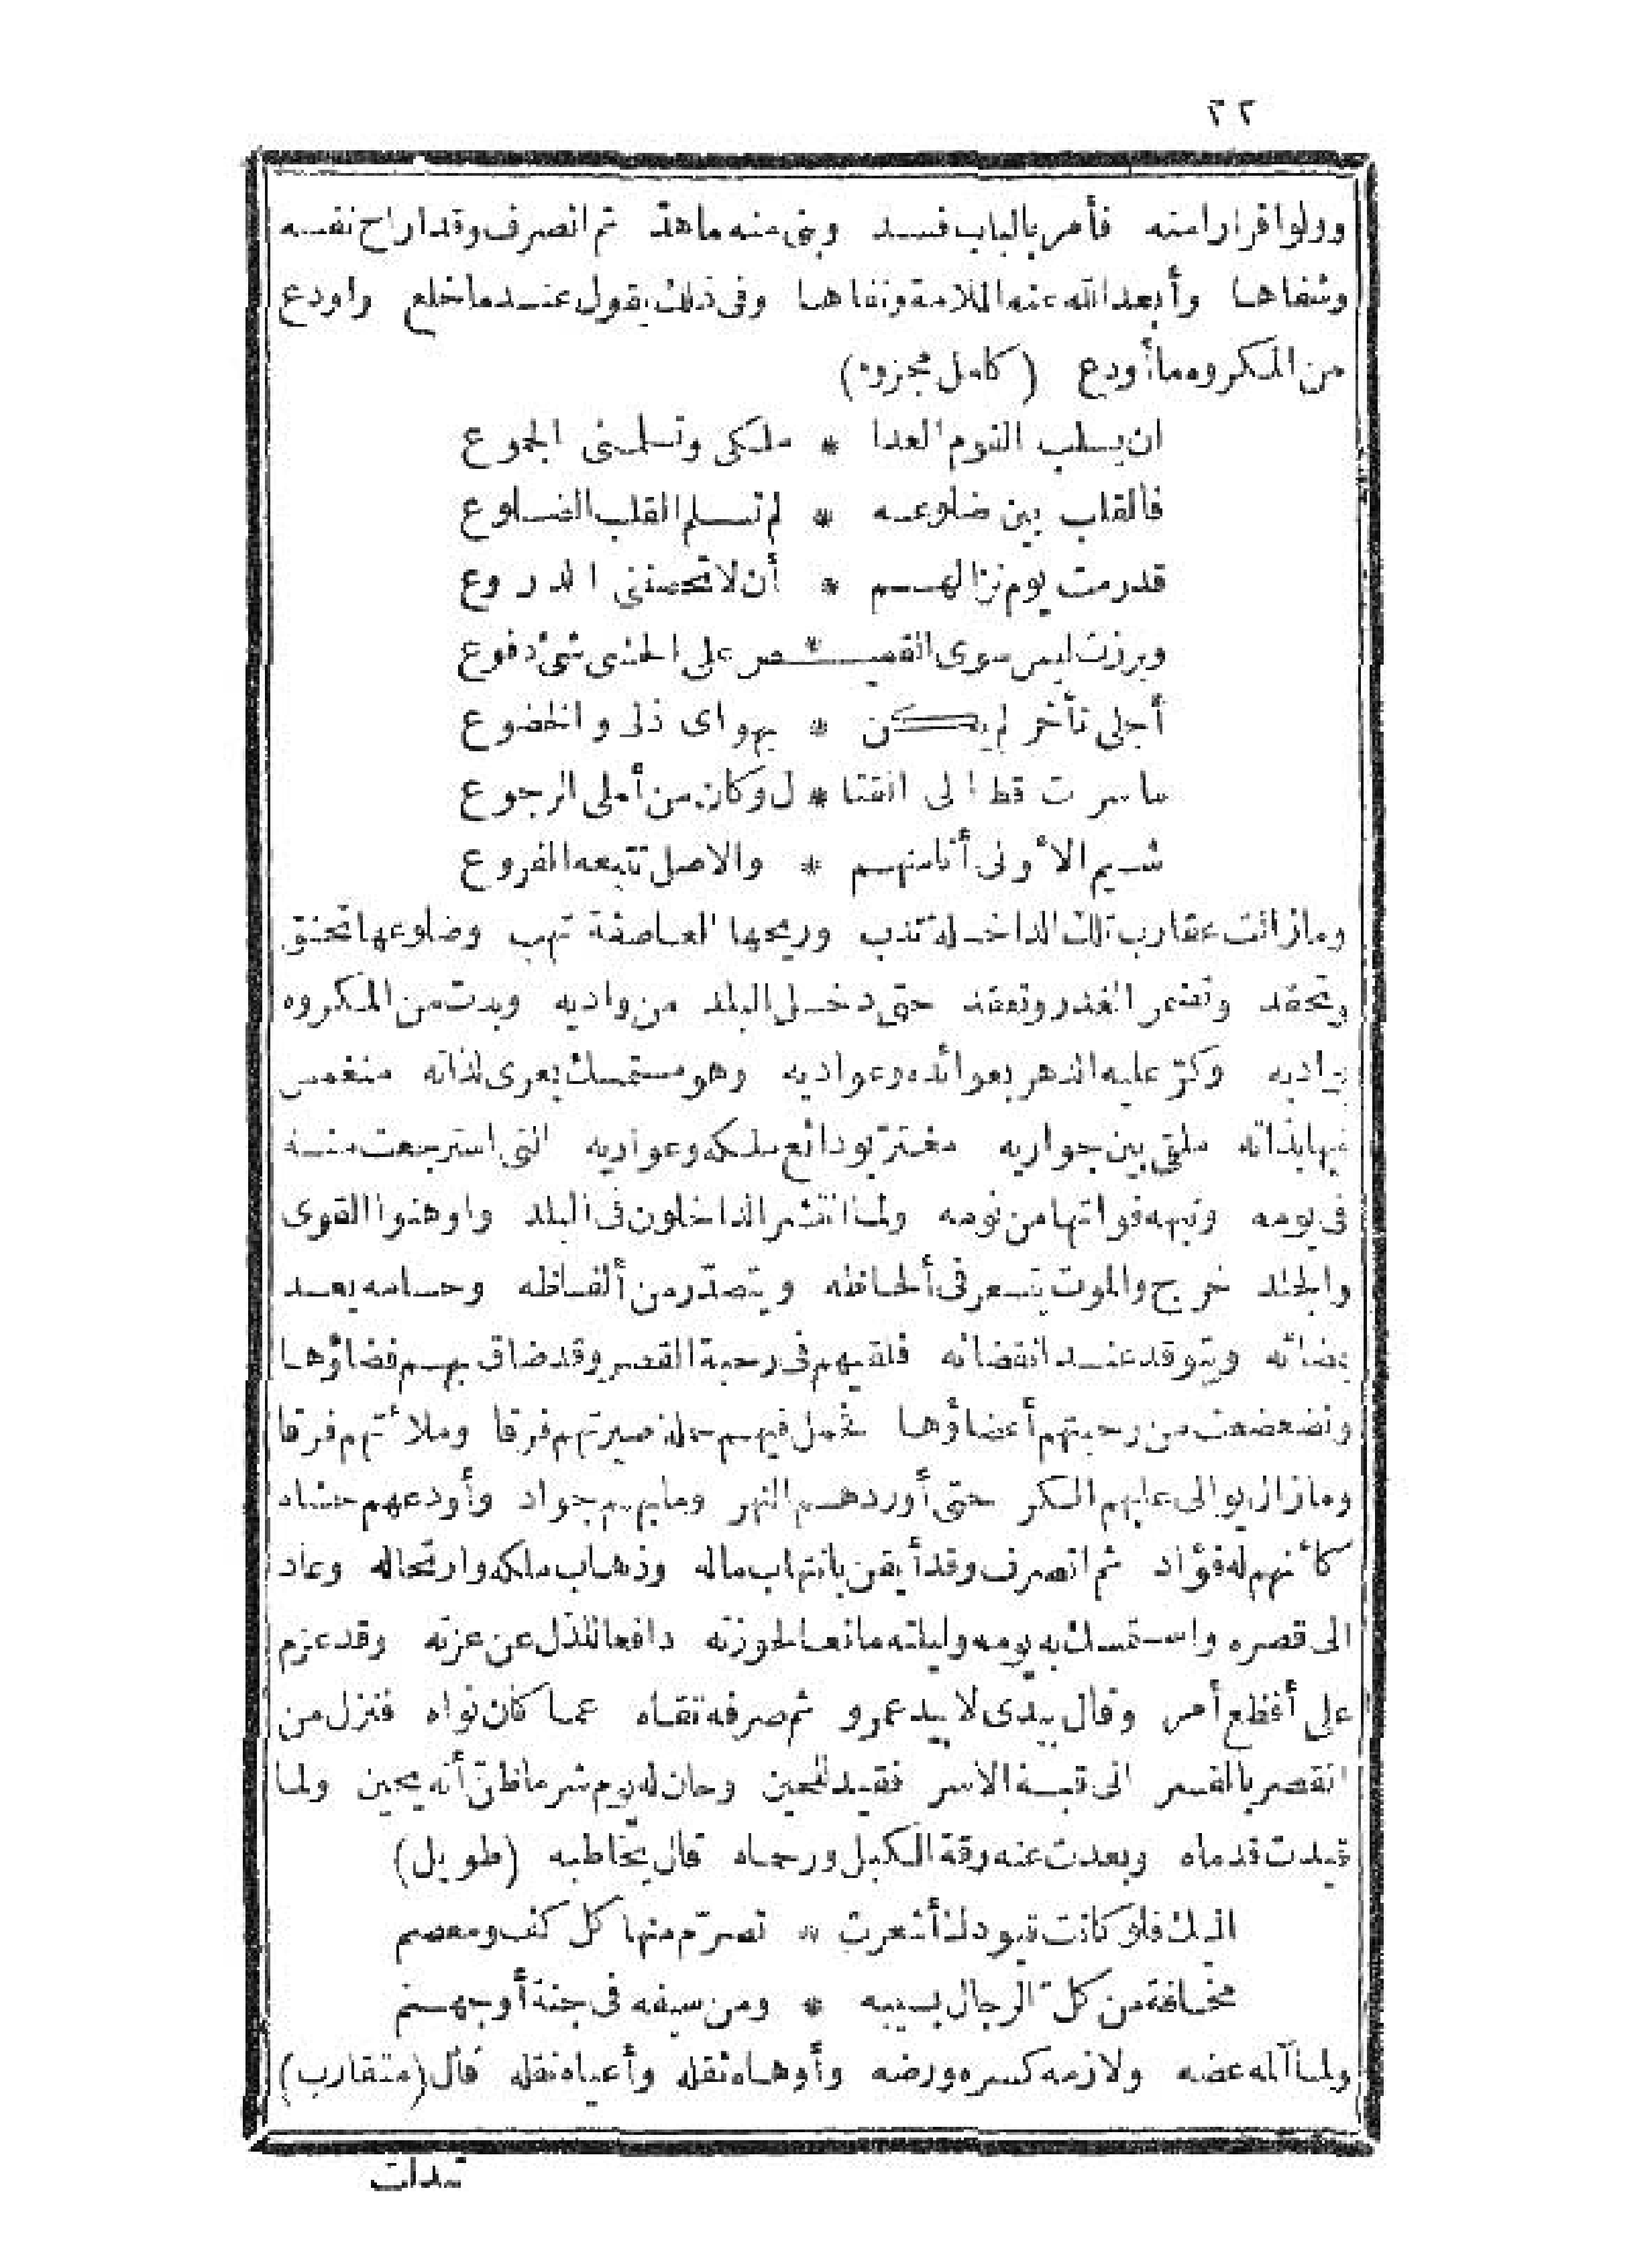 ٢٢
وولوا فرارا منه فأمر بالباب فسد وبنى منه ما هدّ ثم انصرف وقد اراح نفسه
وشفاها وأبعد الله عنه الملامة ونفاها وفى ذلك يقول عند ما خلع واودع
من المكروه ما أودع (كامل مجزوء)
ان يسلب القوم العدا * ملكى وتسلمنى الجموع
فالقلب بين ضلوعه * لم تسلم القلب الضلوع
قد رمت يوم نزالهم * أن لا تحصننى الدروع
وبرزت ليس سوى القميـ * ـص على الحشى شئ دفوع
أجلى تأخر لم يكن * بهواى ذلى والخضوع
ما سرت قط الى القتا * ل وكان من أملى الرجوع
شيم الأولى أنا منهم * والاصل تتبعه الفروع
وما زالت عقارب تلك الداخلة تدب وريحها العاصفة تهب وضلوعها تحنق
وتحقد وتضمر الغدر وتعقد حتى دخل البلد من واديه وبدت من المكروه
بواديه وكرّ عليه الدهر بعوائده وعواديه وهو مستمسك بعرى لذاته منغمس
فيها بذاته ملقى بين جواريه مغترّ بودائع ملكه وعواريه التى استرجعت منه
فى يومه ونبهه فواتها من نومه ولما انتشر الداخلون فى البلد واوهنوا القوى
والجلد خرج والموت يتسعر فى ألحاظه ويتصدّر من ألفاظه وحسامه يعد
بمضائه ويتوقد عند انتضائه فلقيهم فى رحبة القصر وقد ضاق بهم فضاؤها
وتضعضعت من رجتهم أعضاؤها فحمل فيهم حملة صيرتهم فرقا وملأتهم فرقا
وما زال يوالى عليهم الكر حتى أوردهم النهر وما بهم جواد وأودعهم حشاه
كأنهم له فؤاد ثم انصرف وقد أيقن بانتهاب ماله وذهاب ملكه وارتحاله وعاد
الى قصره واستمسك به يومه وليلته مانعا لحوزته دافعا للذل عن عزته وقد عزم
على أفظع أمر وقال بيدى لا بيد عمرو ثم صرفه تقاه عما كان نواه فنزل من
القصر بالقسر الى قبة الاسر فقيد للحين وحان له يوم شر ما ظنّ أنه يحين ولما
قيدت قدماه وبعدت عنه رقة الكبل ورحماه قال يخاطبه (طويل)
اليك فلو كانت قيودك أشعرت * تصرّم منها كل كف ومعصم
مخافة من كلّ الرجال بسيبه * ومن سيفه فى جنة أو جهنم
ولما آلمه عضه ولازمه كسره ورضه وأوهاه ثقله وأعياه نقله قال (متقارب)
تبدلت